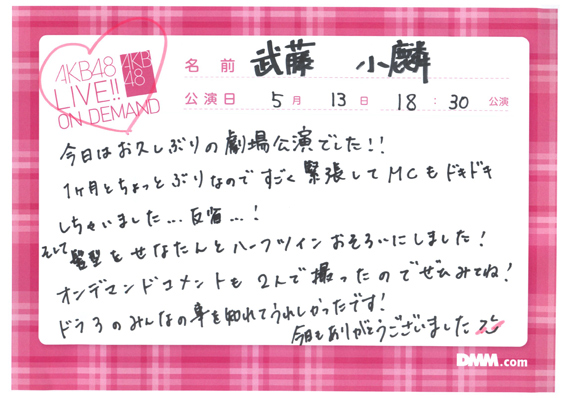 AKB48
LIVE!!
ON DEMAND
AKB
48
名前 武藤 小麟
公演日 5月 13日 18:30 公演
今日はお久しぶりの劇場公演でした!!
1ヶ月とちょっとぶりなのですごく緊張してMCもドキドキ
しちゃいました...反省...!
そして髪型をせなたんとハーフツインおそろいにしました!
オンデマンドコメントも2人で撮ったのでぜひみてね!
ドラ3のみんなの事を知れてうれしかったです!
今日もありがとうございました
DMM.com